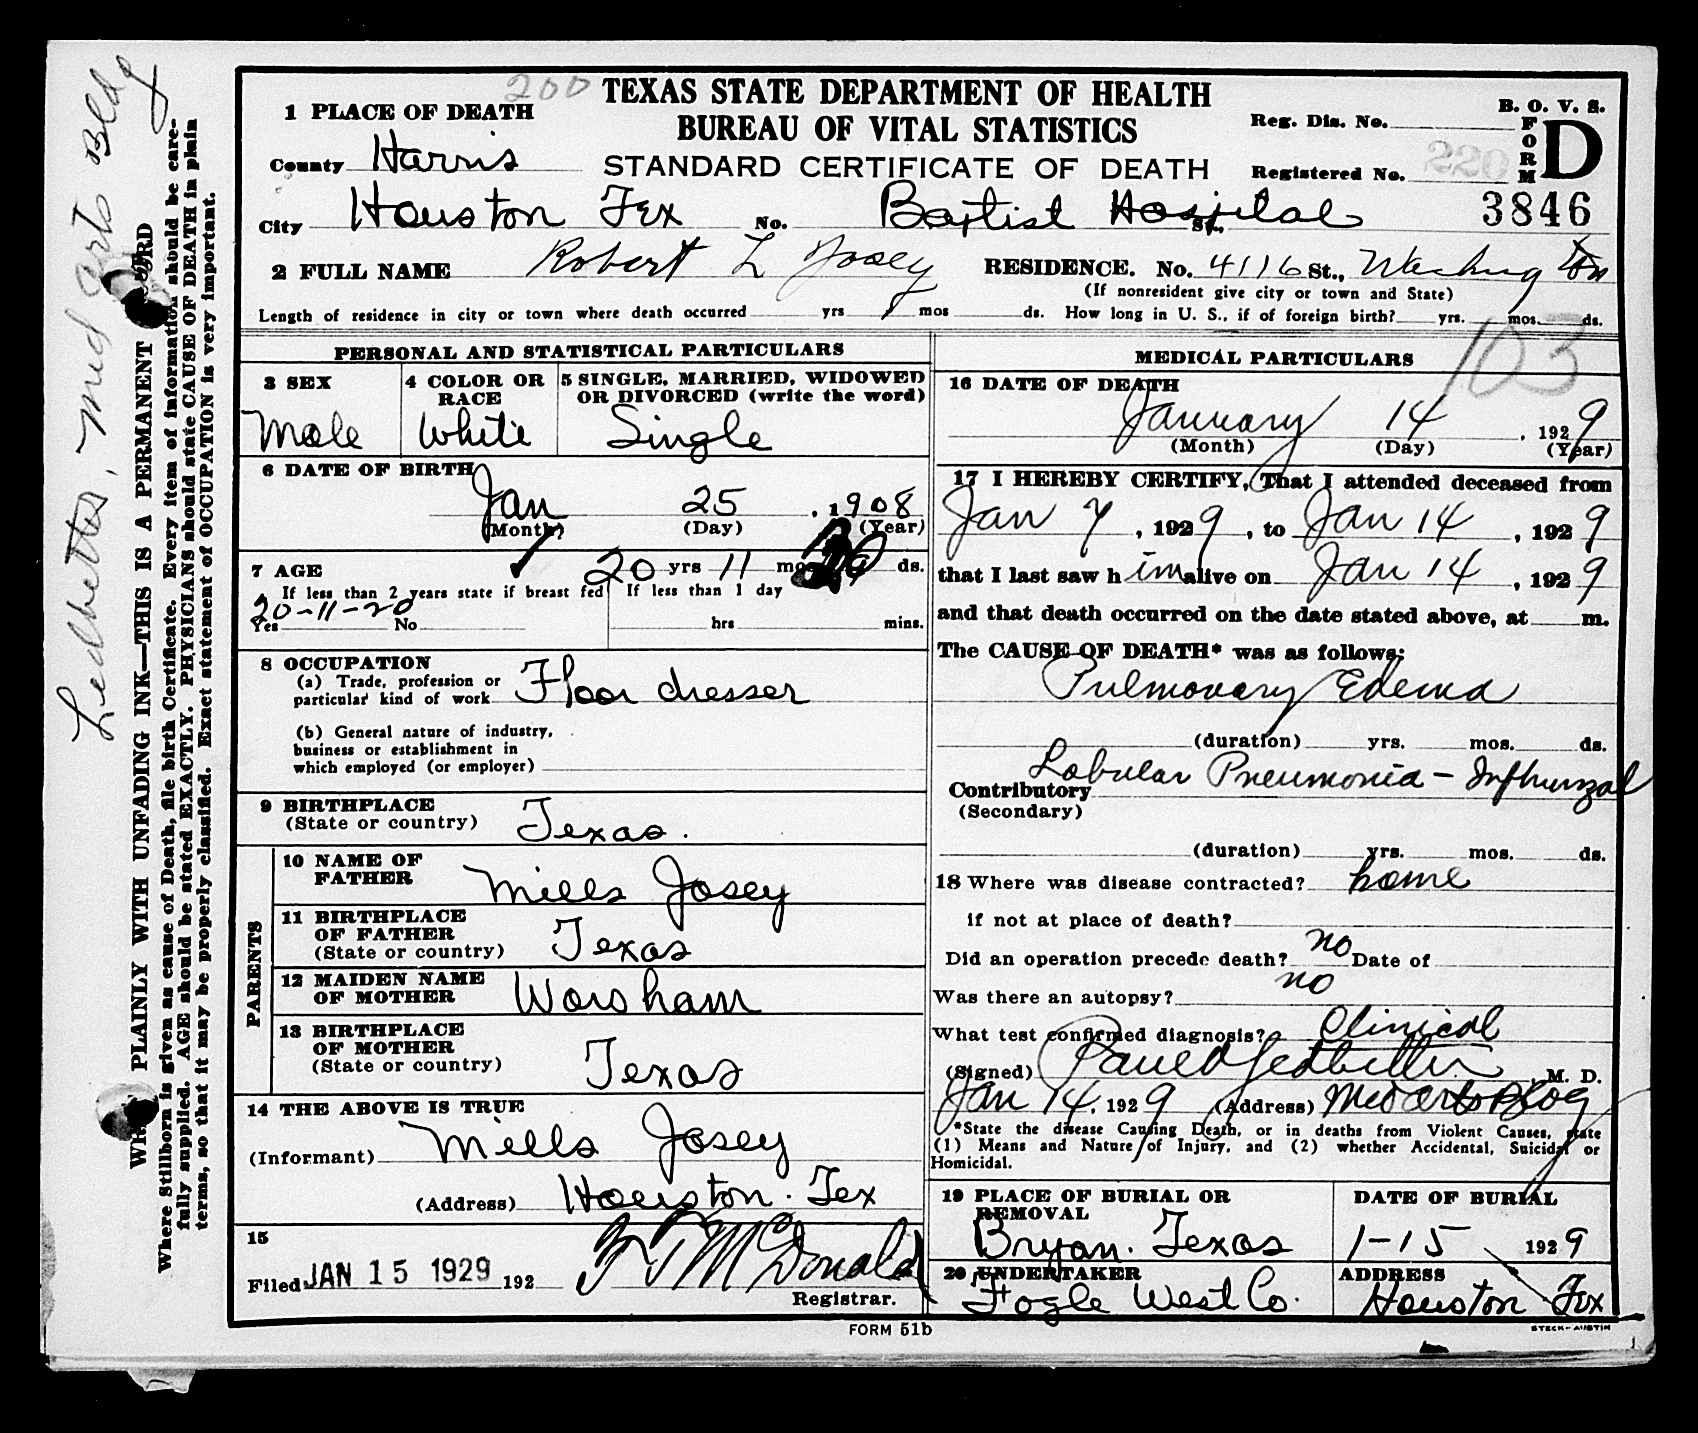 200
TEXAS STATE DEPARTMENT OF HEALTH
BUREAU OF VITAL STATISTICS
STANDARD CERTIFICATE OF DEATH
B. O. V. S.
FORM D
Reg. Dis. No.
Registered No. 220
3846
1 PLACE OF DEATH
County Harris
City Houston Tex No. Baptist Hospital St.,
2 FULL NAME Robert L Josey RESIDENCE. No. 4116 St., Washington
(If nonresident give city or town and State)
Length of residence in city or town where death occurred yrs mos ds. How long in U. S., if of foreign birth? yrs. mos. ds.
PERSONAL AND STATISTICAL PARTICULARS
3 SEX
Male
4 COLOR OR RACE
White
5 SINGLE, MARRIED, WIDOWED
OR DIVORCED (write the word)
Single
6 DATE OF BIRTH
Jan 25, 1908
(Month) (Day) (Year)
7 AGE 20 yrs 11 mos ds.
If less than 2 years state if breast fed If less than 1 day
20-11-20
Yes No hrs mins.
8 OCCUPATION
(a) Trade, profession or
particular kind of work Floor dresser
(b) General nature of industry,
business or establishment in
which employed (or employer)
9 BIRTHPLACE
(State or country) Texas.
PARENTS
10 NAME OF
FATHER Mills Josey
11 BIRTHPLACE
OF FATHER
(State or country) Texas
12 MAIDEN NAME
OF MOTHER Worsham
13 BIRTHPLACE
OF MOTHER
(State or country) Texas
14 THE ABOVE IS TRUE
(Informant) Mills Josey
(Address) Houston. Tex
15
Filed JAN 15 1929 192
McDonald
Registrar.
MEDICAL PARTICULARS
103
16 DATE OF DEATH
January 14, 1929
(Month) (Day) (Year)
17 I HEREBY CERTIFY, That I attended deceased from
Jan 7, 1929, to Jan 14, 1929
that I last saw him alive on Jan 14, 1929
and that death occurred on the date stated above, at m.
The CAUSE OF DEATH* was as follows:
Pulmonary Edema
(duration) yrs. mos. ds.
Contributory Lobular Pneumonia - Influenzal
(Secondary)
(duration) yrs. mos. ds.
18 Where was disease contracted? home
if not at place of death?
Did an operation precede death? no Date of
Was there an autopsy? no
What test confirmed diagnosis? Clinical
(Signed) Paul Ledbetter, M. D.
Jan 14, 1929 (Address) Med arts Bldg
*State the disease Causing Death, or in deaths from Violent Causes, state
(1) Means and Nature of Injury, and (2) whether Accidental, Suicidal or
Homicidal.
19 PLACE OF BURIAL OR
REMOVAL
Bryan. Texas
DATE OF BURIAL
1-15 1929
20 UNDERTAKER
Fogle West Co.
ADDRESS
Houston Tex
FORM 51b
STECK-AUSTIN
Ledbetter, Med arts Bldg
PLAINLY WITH UNFADING INK—THIS IS A PERMANENT
Where Stillborn is given as cause of Death, file birth Certificate. Every item of information should be care-
fully supplied. AGE should be stated EXACTLY. PHYSICIANS should state CAUSE OF DEATH in plain
terms, so that it may be properly classified. Exact statement of OCCUPATION is very important.